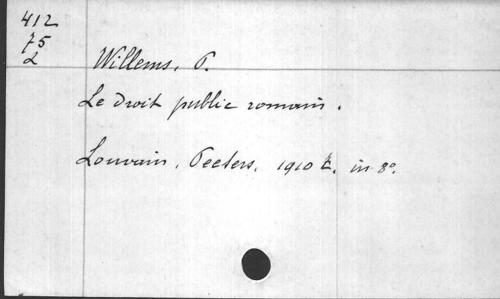 412
75
2
Willems, P.
Le droit public romain.
Louvain, Peeters, 1910. in-8°.